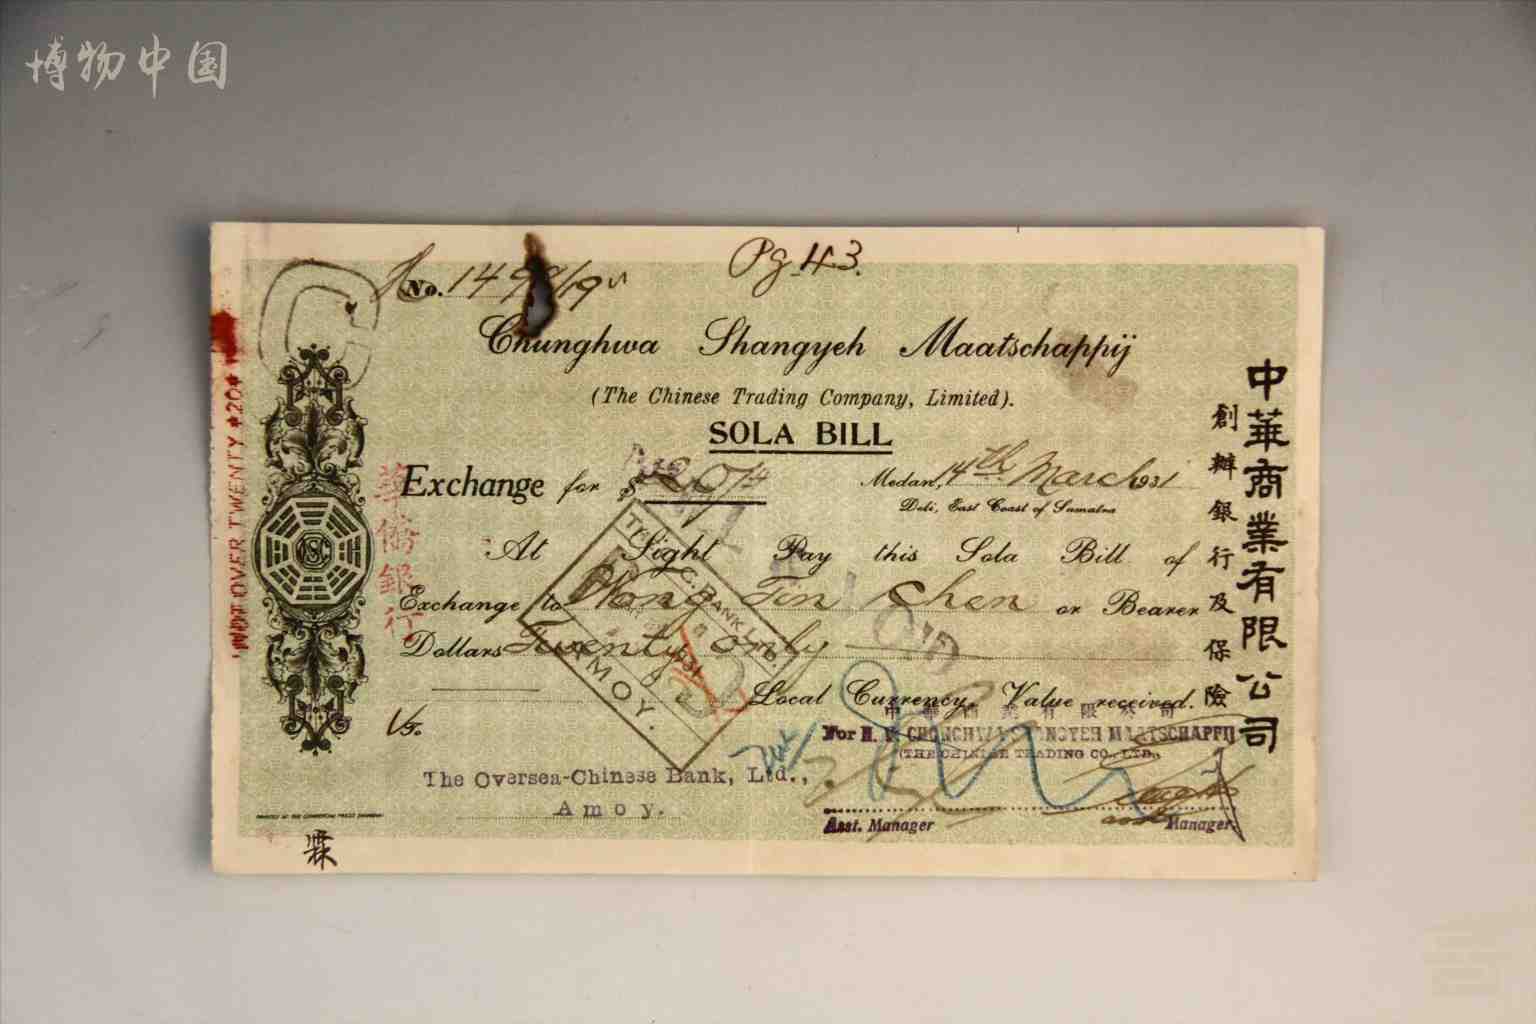 博物中国
Pg 43.
No. 149
Chunghwa Shangyeh Maatschappij
(The Chinese Trading Company, Limited).
SOLA BILL
Exchange for $ 20/#
Medan, 14th March 1931
Deli, East Coast of Sumatra
At Sight Pay this Sola Bill of
Exchange to Wong Tin Chen or Bearer
Dollars Twenty only
Local Currency. Value received.
To.
The Oversea-Chinese Bank, Ltd.,
Amoy.
中華商業有限公司
For N. V. CHUNGHWA SHANGYEH MAATSCHAPPIJ
(THE CHINESE TRADING CO., LTD.)
Asst. Manager
Manager.
中華商業有限公司
創辦銀行及保險
NOT OVER TWENTY $20#
華僑銀行
BANK LTD.
AMOY.
PRINTED AT THE COMMERCIAL PRESS SHANGHAI
霖